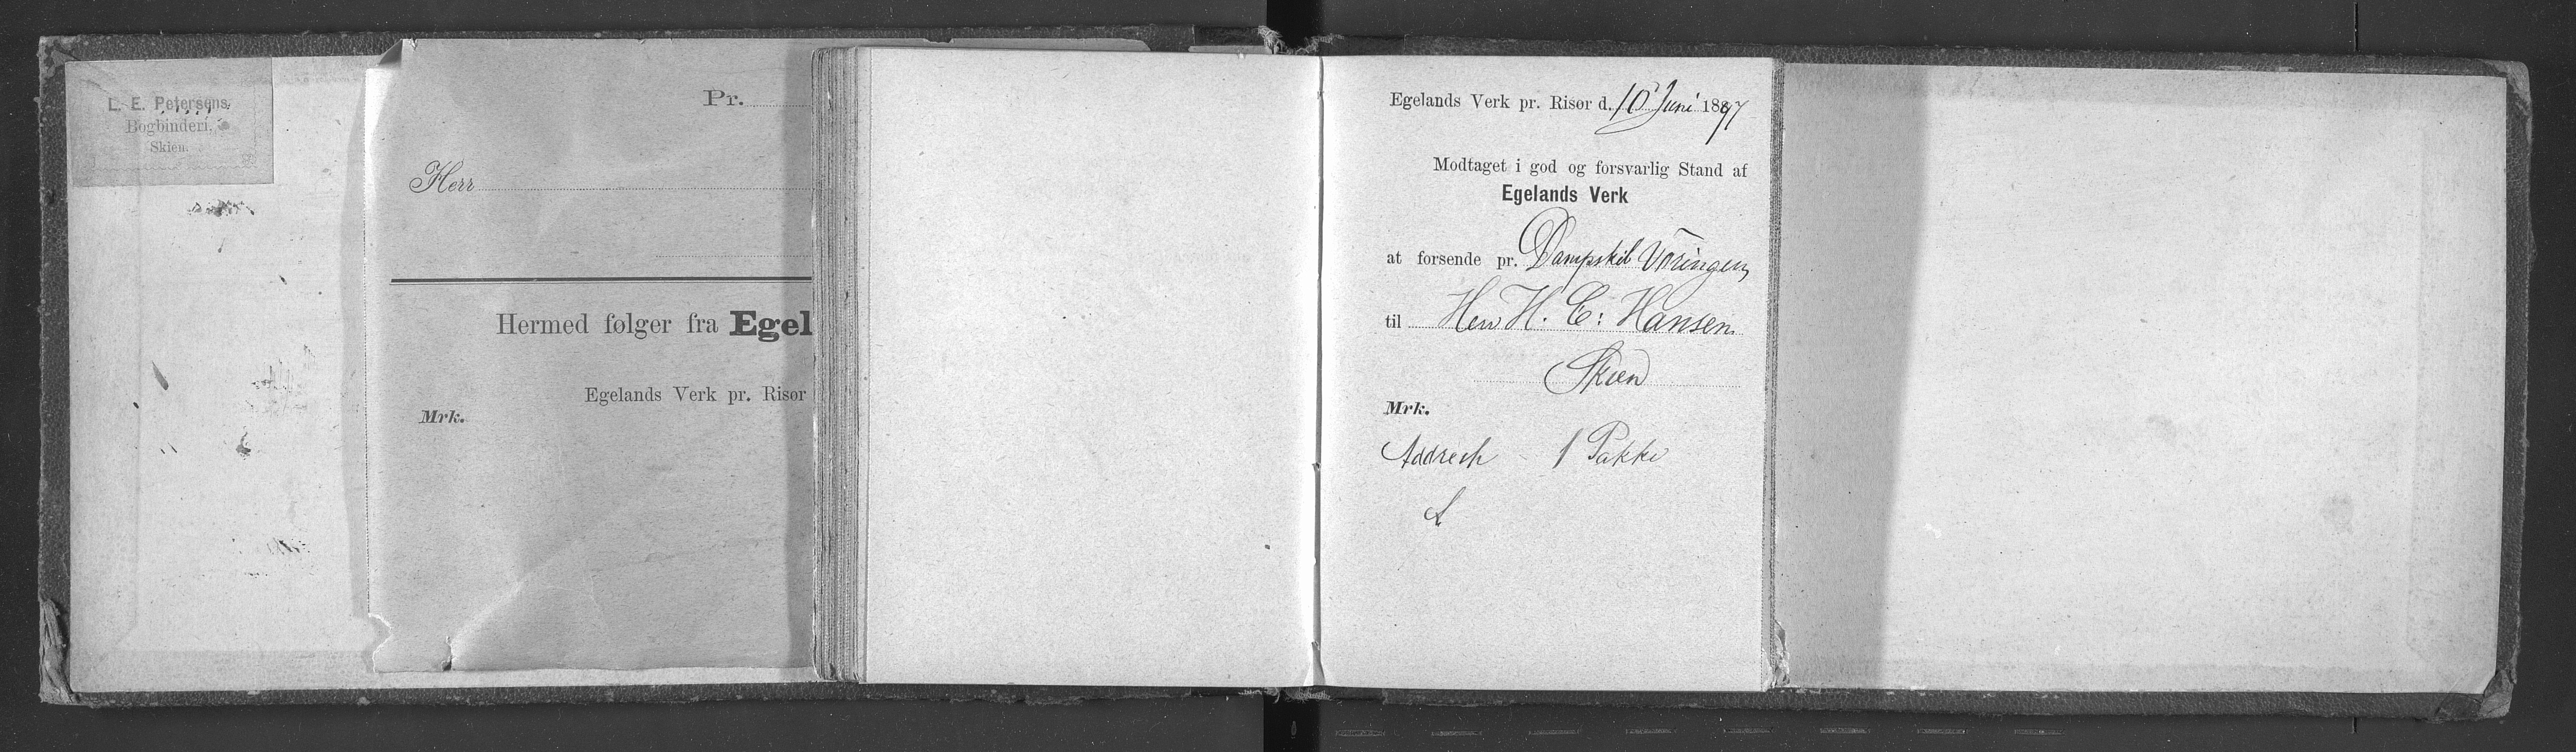 L. E. Petersens
Bogbinderi,
Skien.
Pr.
Herr
Hermed følger fra Egel
Egelands Verk pr. Risør
Mrk.
Egelands Verk pr. Risør d. 10 Juni 1897
Modtaget i god og forsvarlig Stand af
Egelands Verk
at forsende pr. Dampskib Vøringen
til Herr H. C: Hansen
Skien
Mrk.
Addresh - 1 Pakke